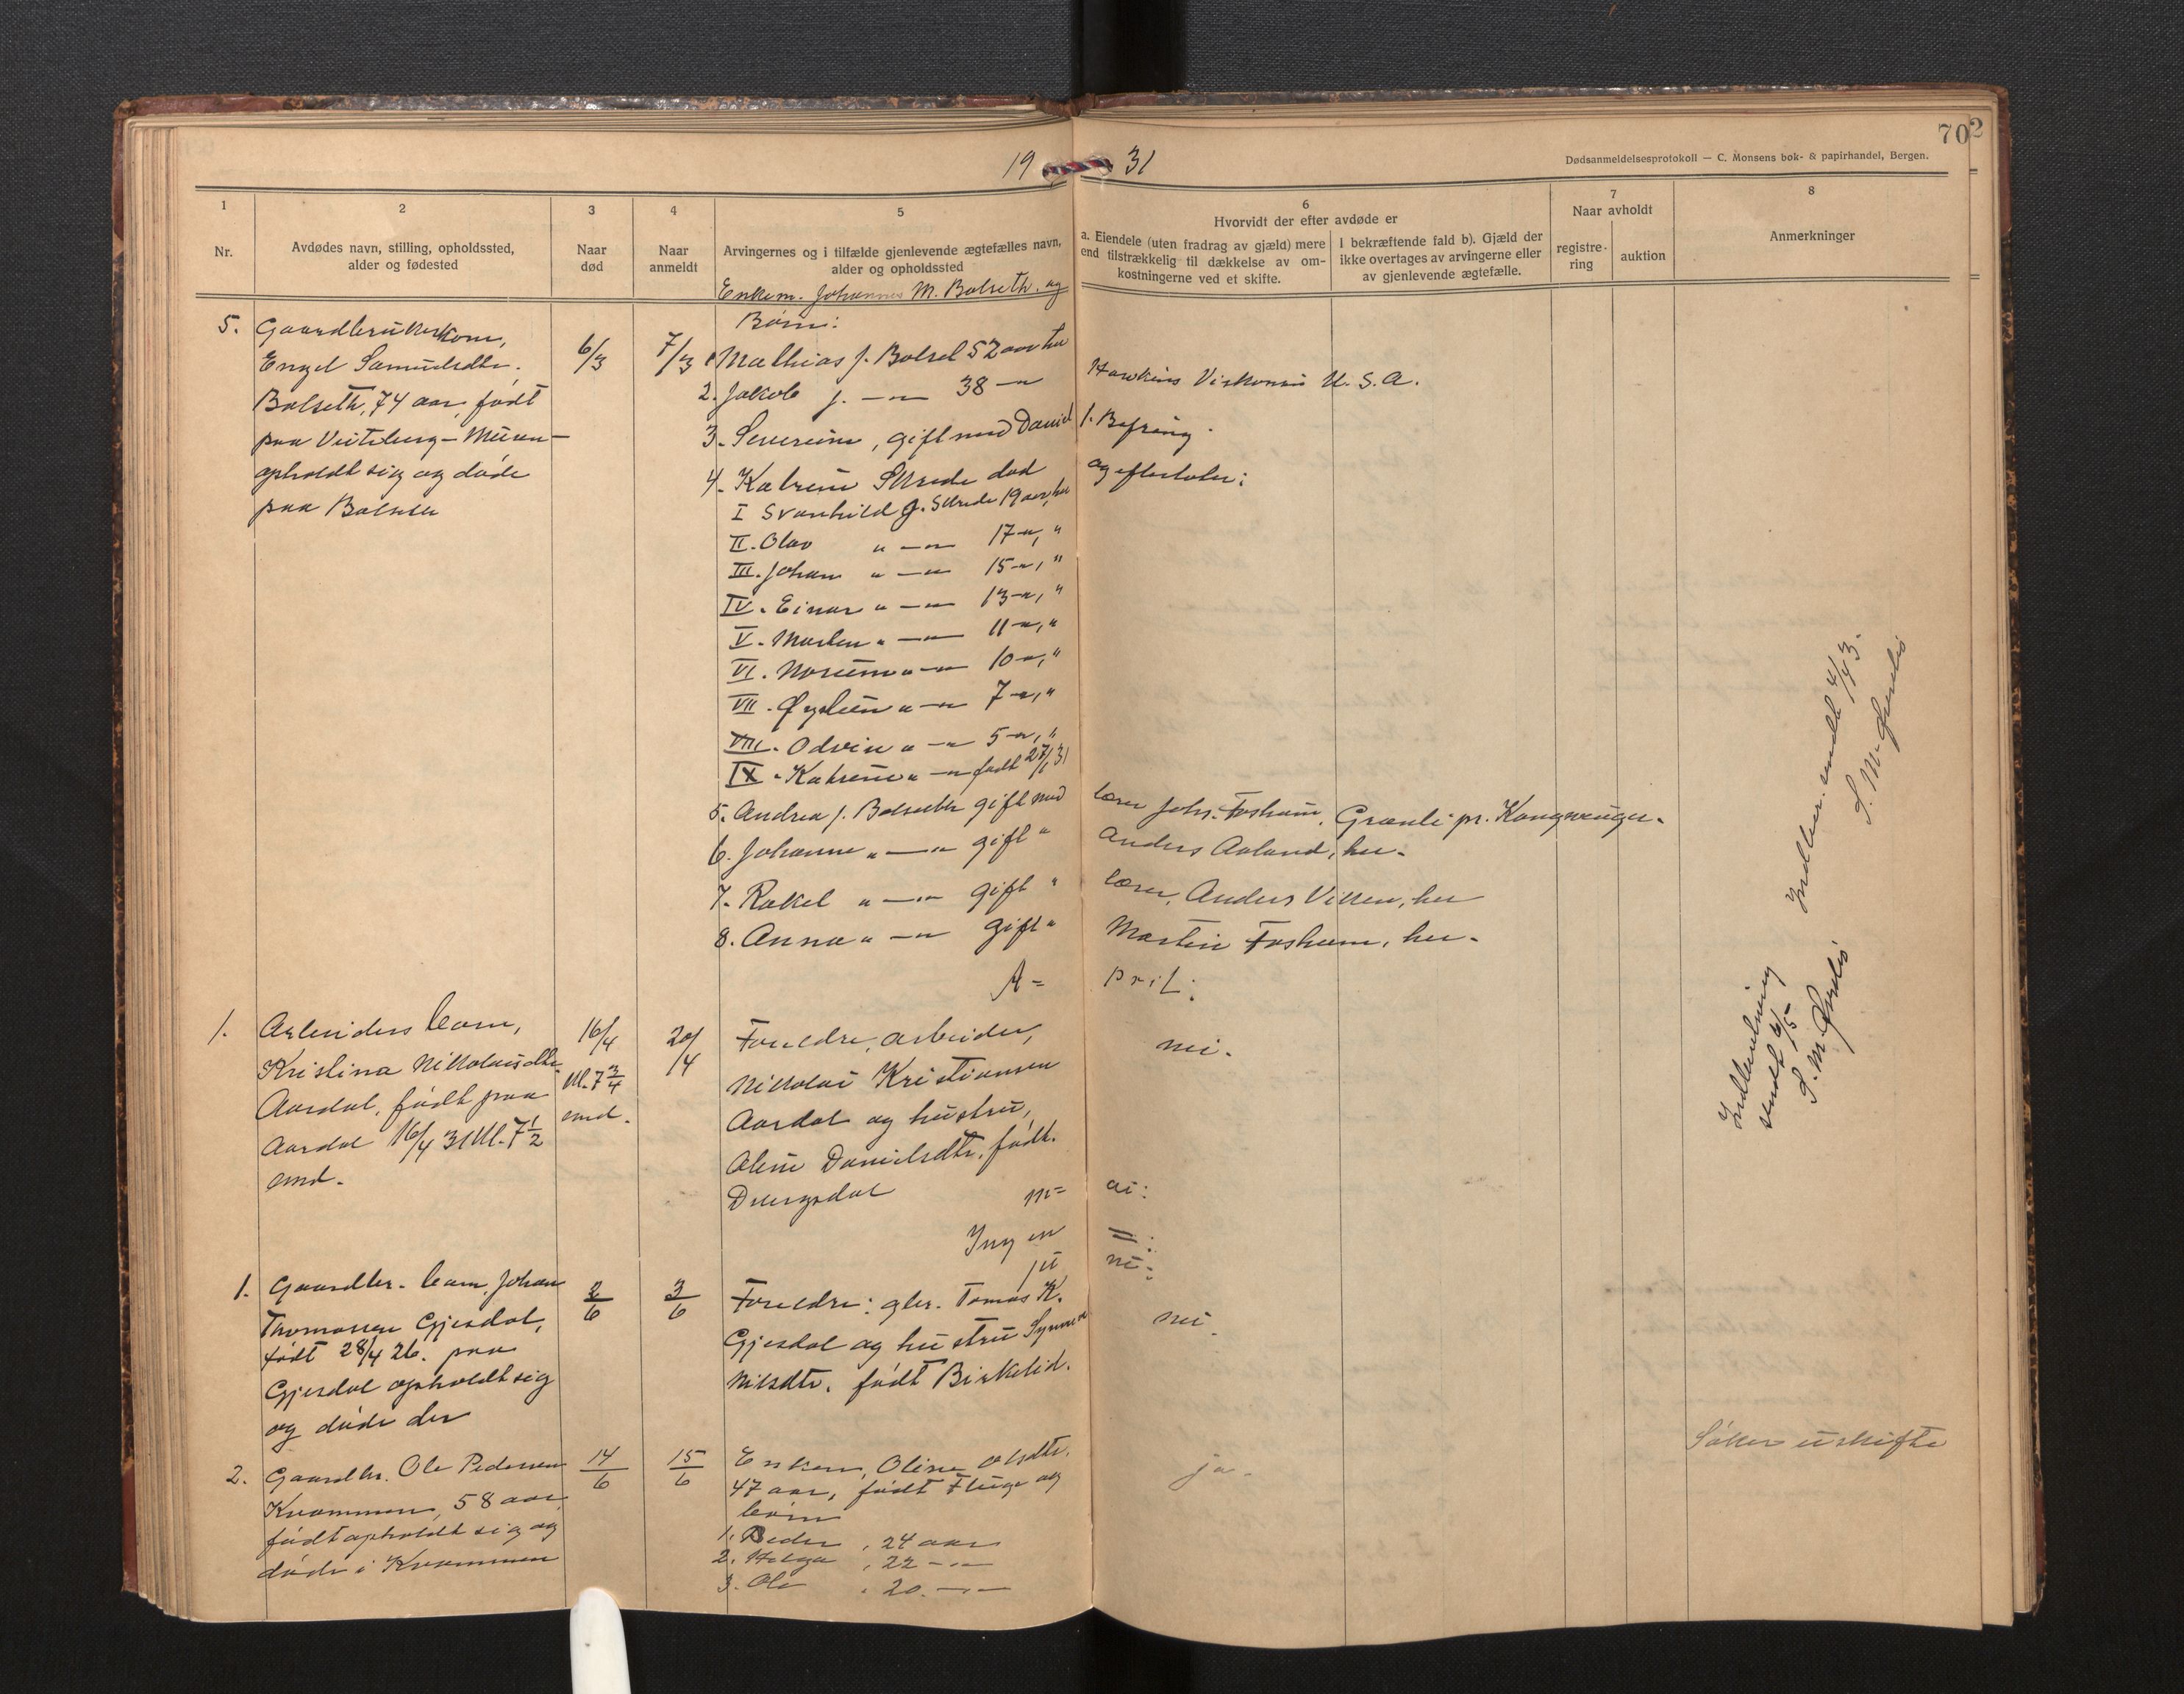 702
19 31
Dødsanmeldelsesprotokoll — C. Monsens bok- & papirhandel, Bergen.
1 2 3 4 5 6 7 8
Nr.
Avdødes navn, stilling, opholdssted,
alder og fødested
Naar
død
Naar
anmeldt
Arvingernes og i tilfælde gjenlevende ægtefælles navn,
alder og opholdssted
Hvorvidt der efter avdøde er
a. Eiendele (uten fradrag av gjæld) mere
end tilstrækkelig til dækkelse av om-
kostningerne ved et skifte.
I bekræftende fald b). Gjæld der
ikke overtages av arvingerne eller
av gjenlevende ægtefælle.
Naar avholdt
registre-
ring
auktion
Anmerkninger
Enkem. Johannes M. Bolseth. og
Børn:
5. Gaardbrukerkone,
Engel Samuelsdtr.
Bolseth, 74 aar, født
paa
opholdt sig og døde
paa
6/3
7/3
1. Mathias J. Bolset 52 aar her
2. Jakob J. —"— 38 —"
Hawkins Viskonsin U.S.A.
3. Severine, gift med Daniel J. Befring.
4. Katrine Strede død og efterlater:
I Svanhild J. Strede 19 aar, her
II. Olav " —"— 17 —", "
III. Johan " —"— 15 —", "
IV. Einar " —"— 13 —", "
V. Morten " —"— 11 —", "
VI. " —"— 10 —", "
VII. Øystein " —"— 7 —", "
VIII. Odvin " —"— 5 —", "
IX. Katrine " —"— født 27/1 31
5. Andrea J. gift med lærer Johs. Fosheim, Granli pr. Kongsvinger.
6. Johanne " —"— gift " Anders Aaland, her.
7. Rakel " —"— gift " lærer, Anders Viken, her
8. Anna " —"— gift " Martin Fosheim, her.
Indber. sendt 4/1 43.
A= pril:
1. Arbeiders barn,
Kristina Nikolaisdtr.
Aardal, født paa
Aardal 16/4 31 kl. 7 1/2
emd.
16/4
kl. 7 3/4
emd.
20/4
Foreldre, arbeider,
Nikolai Kristiansen
Aardal og hustru,
Oline Danielsdtr. født.
Dvergsdal
nei.
Indberetning
sendt 6/5
m= ai:
Ingen =:
ju ni:
1. Gaardbr. barn, Johan
Thomassen Gjesdal,
født 28/4 26. paa
Gjesdal opholdt sig
og døde der
2/6
3/6
Foreldre: gbr. Tomas K.
Gjesdal og hustru Synneva
Nilsdtr. født Birkelid.
nei.
2. Gaardbr. Ole Pedersen
Kvammen, 58 aar
født opholdt sig og
døde i Kvammen
14/6
15/6
Enken, Oline Olsdtr.
47 aar, født Fluge og
børn
1. Peder, 24 aar
2. Helga, 22 —"—
3. Ole, 20. —"—
ja.
Søker uskifte